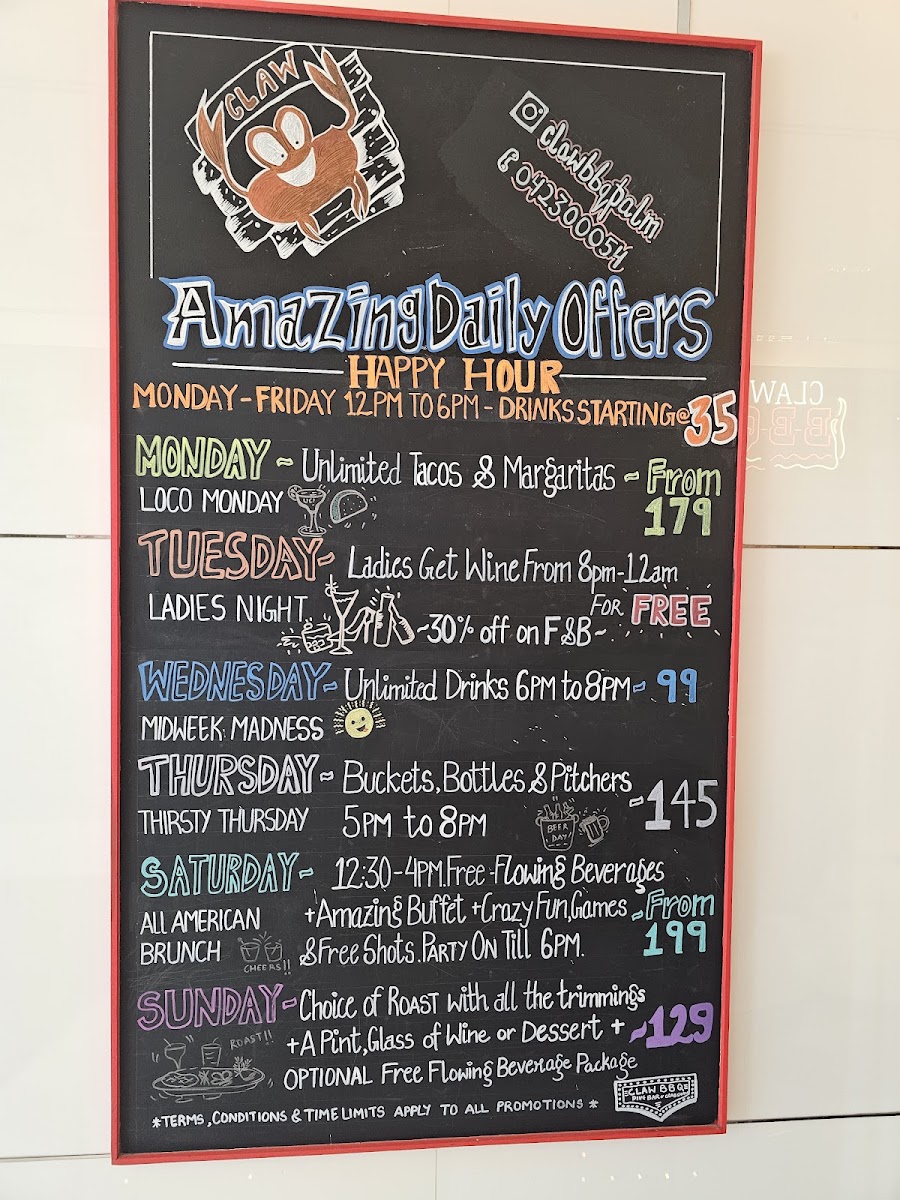 CLAW
clawbbqpalm
042300054
Amazing Daily Offers
HAPPY HOUR
MONDAY - FRIDAY 12PM TO 6PM - DRINKS STARTING @ 35
MONDAY ~ Unlimited Tacos & Margaritas ~ From
LOCO MONDAY
179
TUESDAY ~ Ladies Get Wine From 8pm-12am
LADIES NIGHT
FOR FREE
~30% off on F&B~
WEDNESDAY ~ Unlimited Drinks 6PM to 8PM ~ 99
MIDWEEK MADNESS
THURSDAY ~ Buckets, Bottles & Pitchers
~145
THIRSTY THURSDAY 5PM to 8PM
BEER
DAY!
SATURDAY ~ 12:30 - 4PM. Free-Flowing Beverages
ALL AMERICAN +Amazing Buffet +Crazy Fun, Games ~ From
BRUNCH & Free Shots. PARTY ON TILL 6PM. 199
CHEERS!!
SUNDAY ~ Choice of ROAST with all the trimmings
+A Pint, Glass of Wine or Dessert + ~129
ROAST!!
OPTIONAL Free Flowing Beverage Package
CLAW BBQ
*TERMS, CONDITIONS & TIME LIMITS APPLY TO ALL PROMOTIONS *
CLAW
B-B-Q